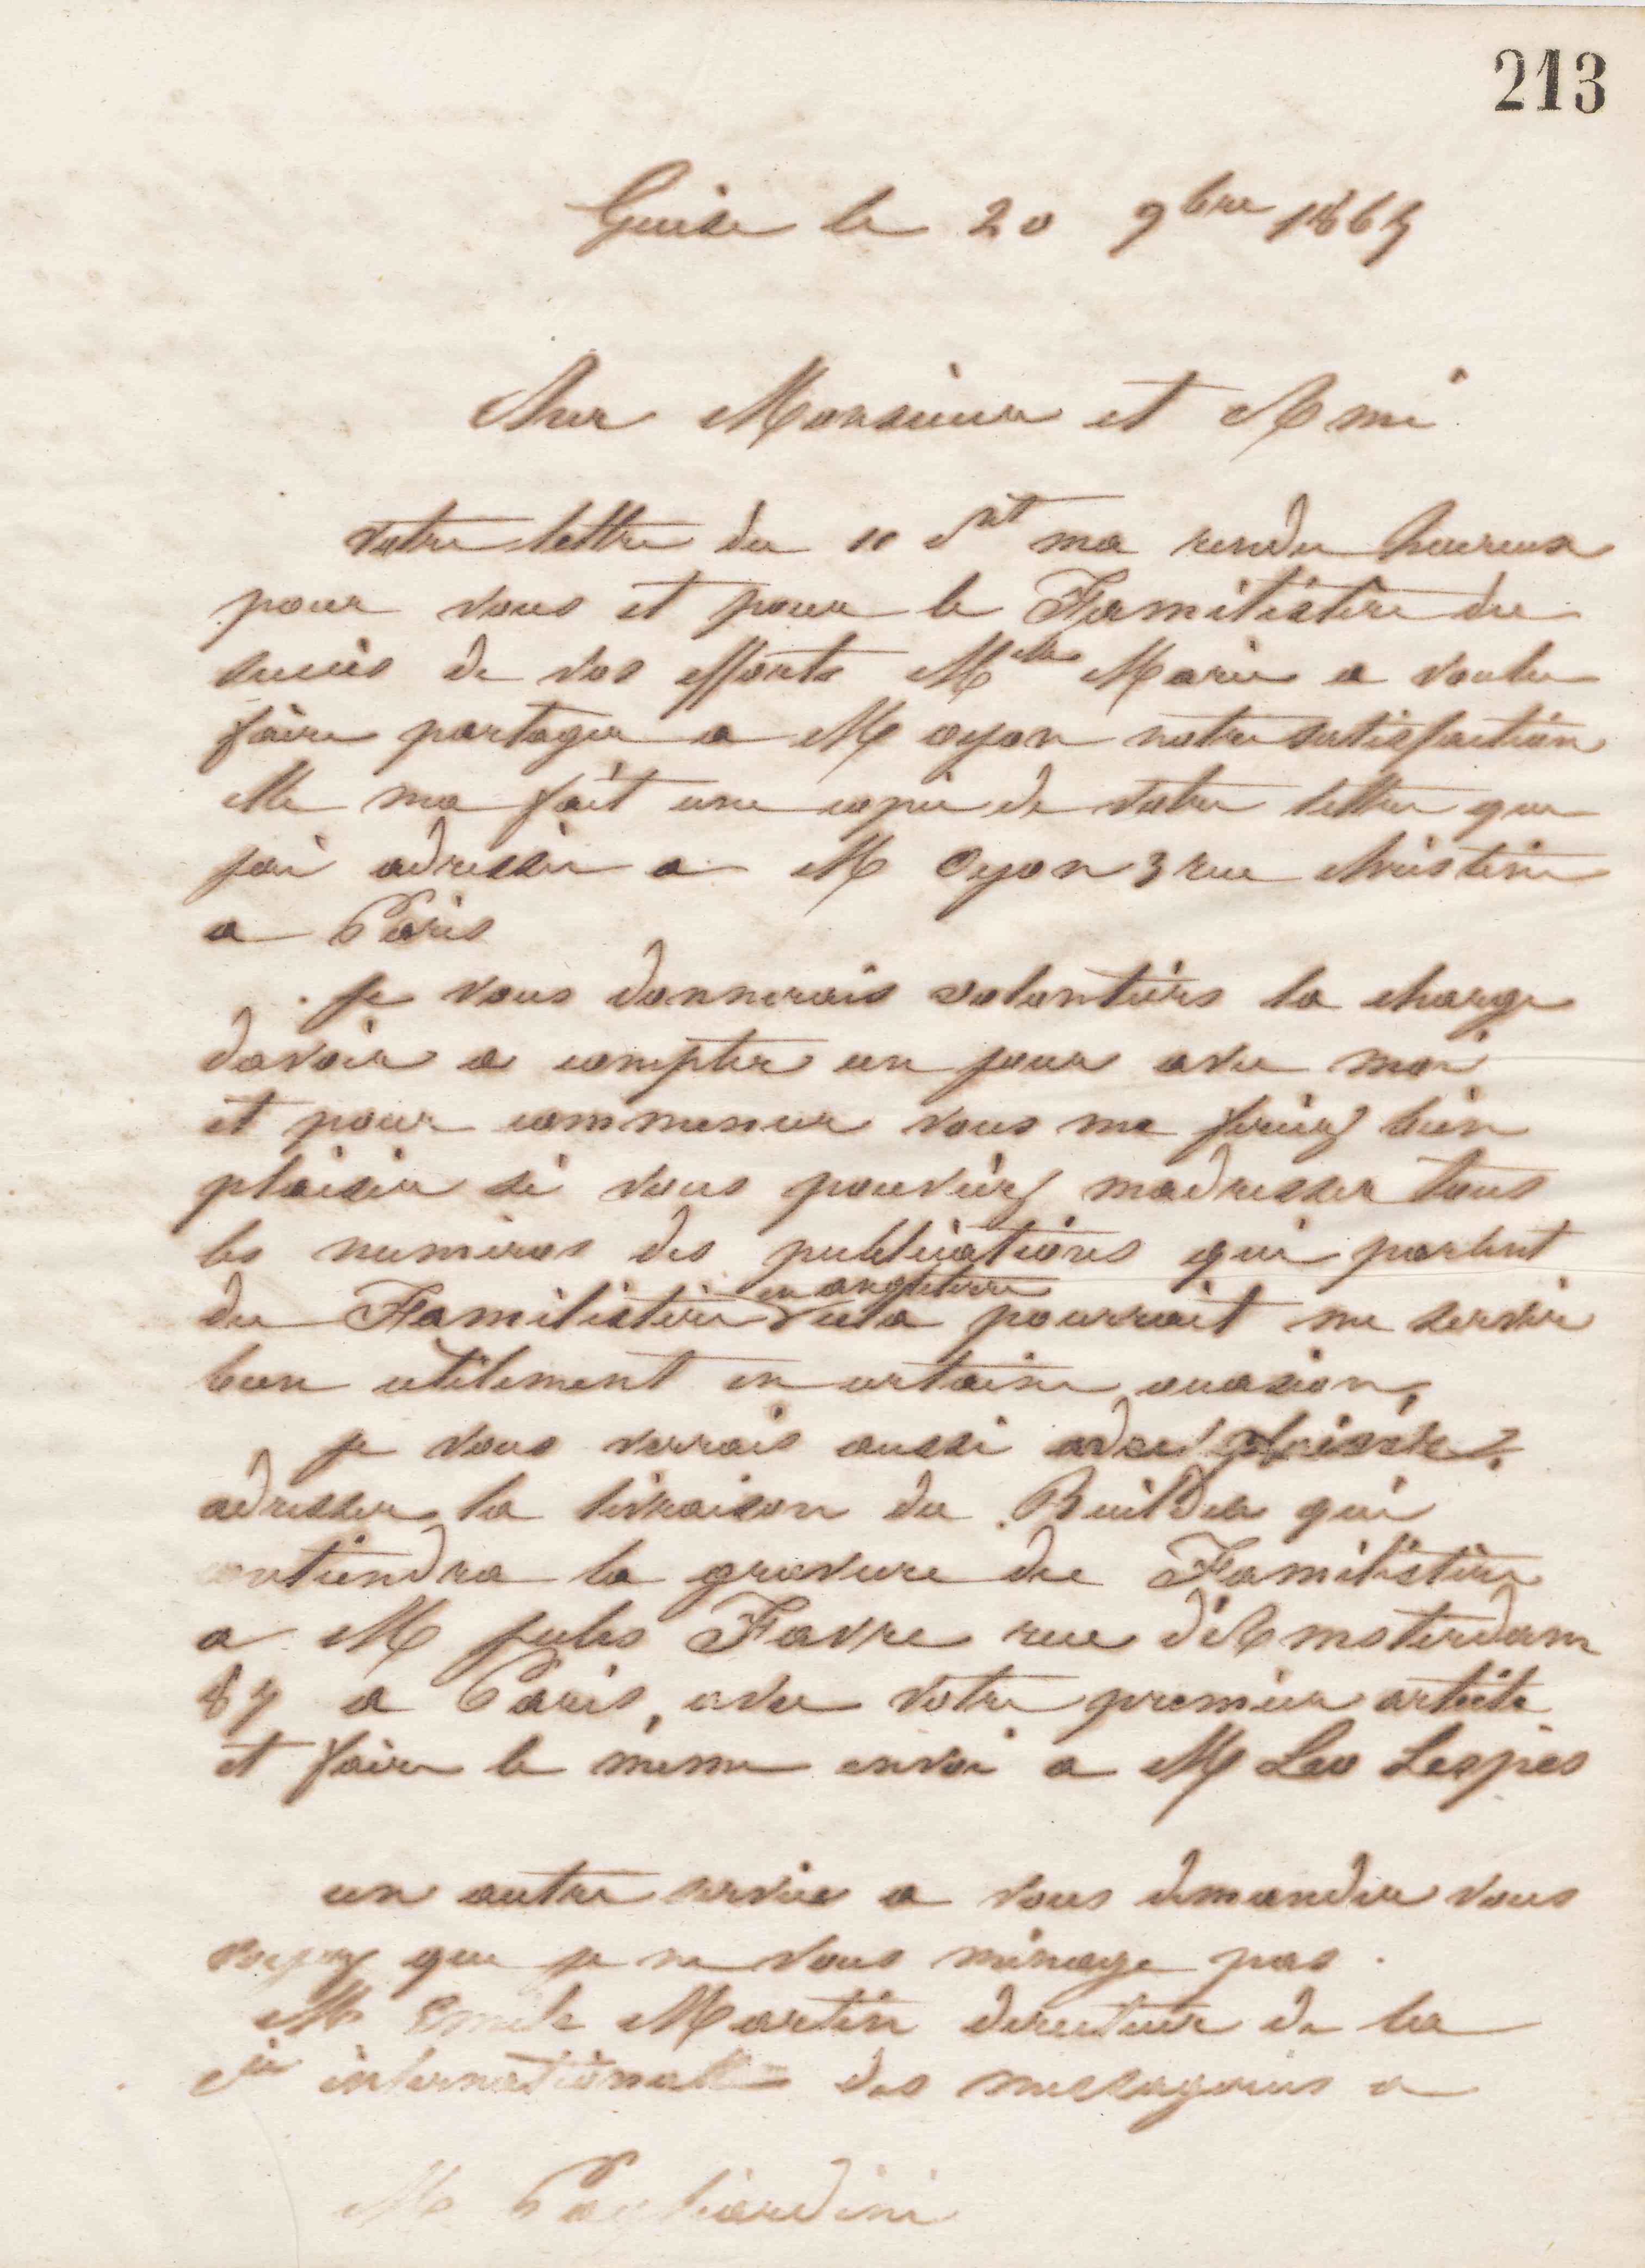 213
Guise le 20 9bre 1865
Cher Monsieur et Ami
Votre lettre du 10 ct ma rendu heureux
pour vous et pour le Familistère du
succès de vos efforts Mlle Marie a voulu
faire partager a M oyon notre satisfaction
elle ma fait une copie de votre lettre que
jai adressée a M Oyon 3 rue Christine
a Paris
je vous donnerais volontiers la charge
davoir a compter un jour avec moi
et pour commencer vous me feriez bien
plaisir si vous pouviez madresser tous
les numéros des publications qui parlent
en angleterre
du Familistère cela pourrait me servir
bien utilement en certaine occasion,
je vous verrais aussi avec plaisir
adresser la livraison du Builder qui
contiendra la gravure du Familistère
a M jules Favre rue d'Amsterdam
87 a Paris, avec votre premier article
et faire le même envoi a M Leo Lespès
un autre service a vous demander vous
voyez que je ne vous ménage pas.
M Emile Martin directeur de la
cie internationale des messageries a
M Pagliardini